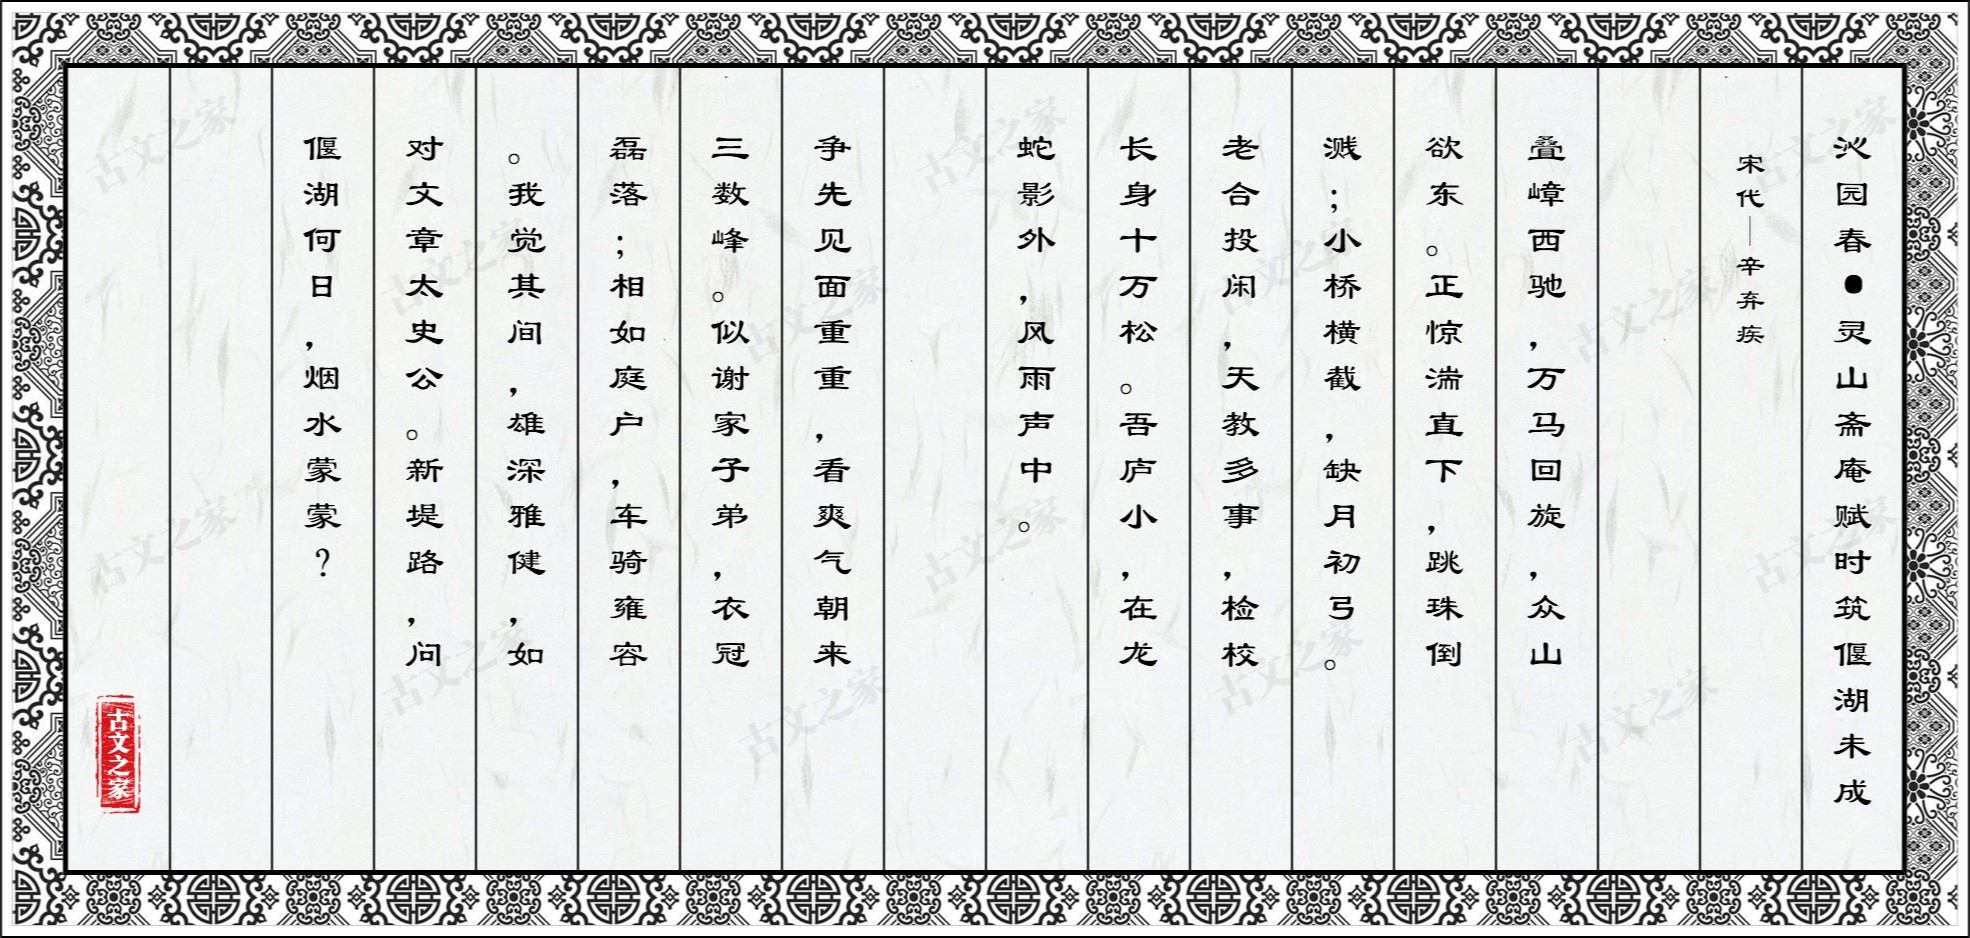 沁园春●灵山斋庵赋时筑偃湖未成
宋代—辛弃疾
叠嶂西驰，万马回旋，众山
欲东。正惊湍直下，跳珠倒
溅；小桥横截，缺月初弓。
老合投闲，天教多事，检校
长身十万松。吾庐小，在龙
蛇影外，风雨声中。
争先见面重重，看爽气朝来
三数峰。似谢家子弟，衣冠
磊落；相如庭户，车骑雍容
。我觉其间，雄深雅健，如
对文章太史公。新堤路，问
偃湖何日，烟水蒙蒙？
古文之家